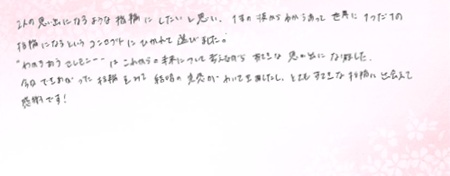 2人の思い出になるような指輪にしたいと思い、1本の木からわかちあって世界に1つだけの
指輪になるというコンセプトにひかれて選びました。
"わかちあうセレモニー"はこれからの未来について考えながら すてきな思い出になりました。
今日できあがった指輪をみて 結婚の実感がわいてきましたし、とてもすてきな指輪に出会えて
感謝です!